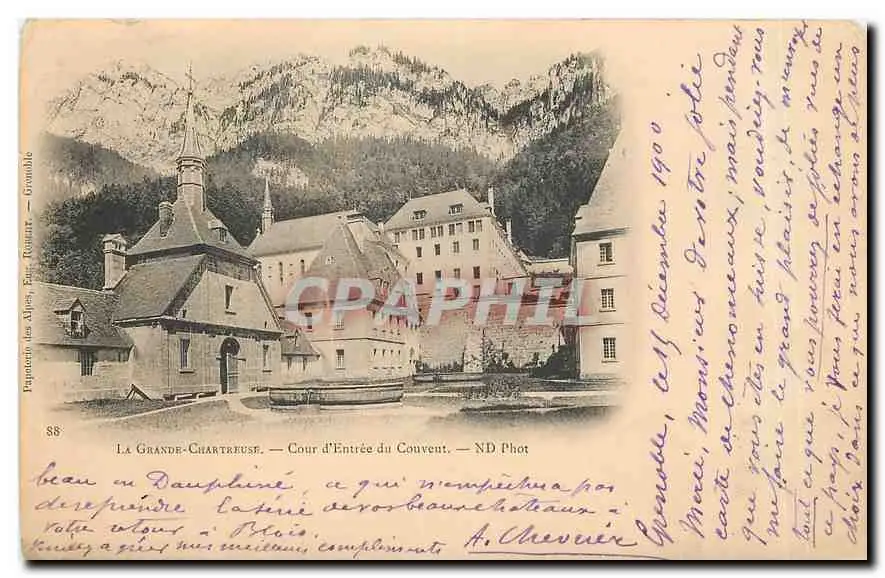 Grenoble, le 15 Décembre 1900
Merci, Monsieur de votre jolie
carte de chenonceaux, mais pendant
que vous êtes en suisse, voudriez-vous
me faire le grand plaisir, de m'envoyer
tout ce que vous pourrez de jolies vues de
ce pays, je vous ferai en échange un
choix dans ce que nous avons de plus
beau en Dauphiné, ce qui n'empêchera pas
de reprendre la série de vos beaux châteaux à
votre retour à Blois.
Veuillez agréer mes meilleurs compliments
A. Chevrier
Papeterie des Alpes, Eug. Robert. - Grenoble
CPAPHIL
88
La Grande-Chartreuse. — Cour d'Entrée du Couvent. — ND Phot